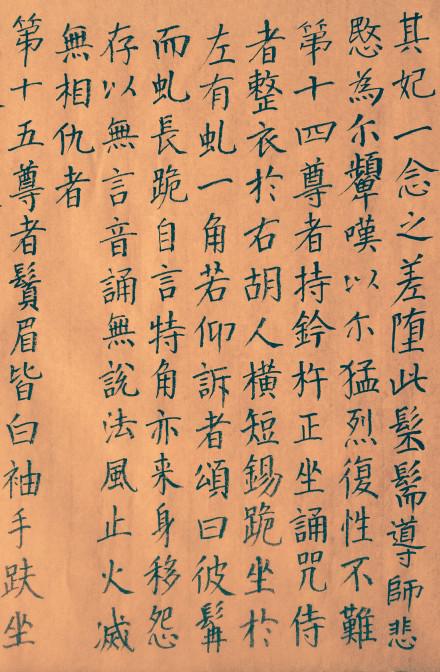 其妃一念之差堕此髬髵導師悲
愍為尒顰嘆以尒猛烈復性不難
第十四尊者持鈴杵正坐誦咒侍
者整衣於右胡人橫短錫跪坐於
左有虬一角若仰訴者頌曰彼髯
而虬長跪自言特角亦来身移怨
存以無言音誦無說法風止火滅
無相仇者
第十五尊者鬢眉皆白袖手趺坐